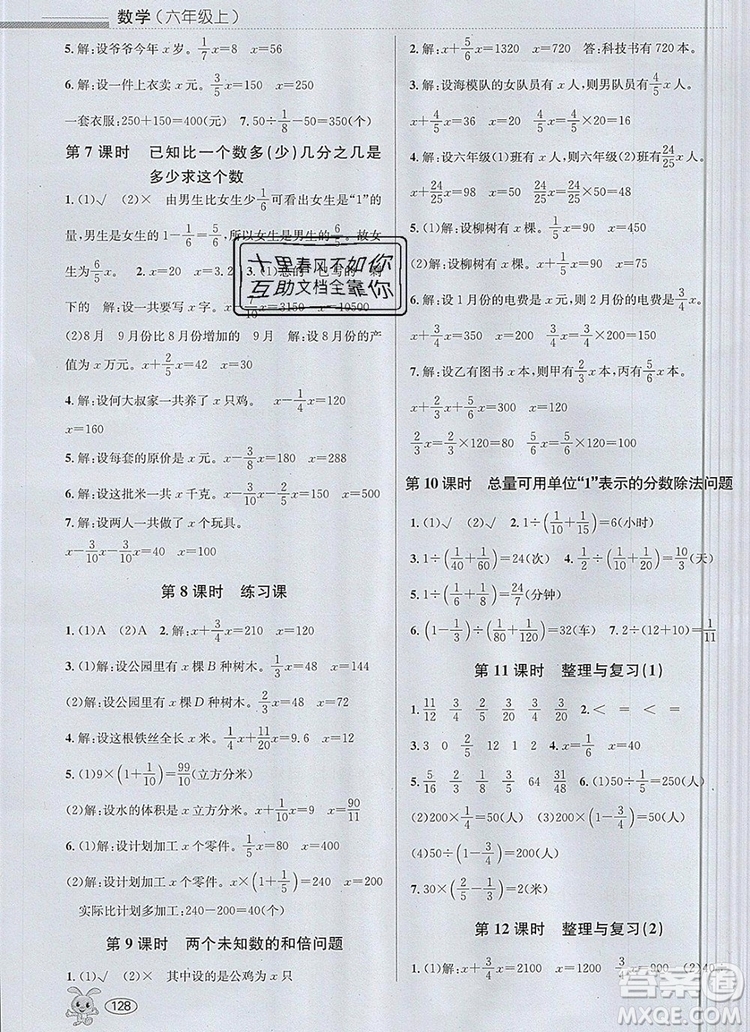 数学(六年级上)
5. 解:设爷爷今年 x 岁。1/7x=8 x=56
6. 解:设一件上衣卖 x 元。3/5x=150 x=250
一套衣服:250+150=400(元) 7. 50÷1/8-50=350(个)
第 7 课时 已知比一个数多(少)几分之几是
多少求这个数
1. (1)√ (2)× 由男生比女生少1/6可看出女生是“1”的
数量,男生是1-1/6=5/6,所以女生是男生的
下的 解:设一共要写 x 字。 x=3150 x=10500
(2)8月 9月份比8月份增加的 解:设8月份的产
值为 x 万元。x+2/5x=42 x=30
4. 解:设何大叔家一共养了 x 只鸡。 x-1/4x=120
x=160
5. 解:设每套的原价是 x 元。x-3/8x=200 x=320
6. 解:设这批米一共 x 千克。x-1/3x=120 x=180
7. 解:设两人一共做了 x 个玩具。
x-3/10x-5/10x=20 x=100
第 8 课时 练习课
1. (1)A (2)A 2. 解:x+3/4x=210 x=120
3. (1)解:设公园里有 x 棵 B 种树木。x-2/5x=45 x=75
(2)解:设公园里有 x 棵 D 种树木。x+2/7x=450 x=350
4. 解:设这根铁丝全长 x 米。1/4x+2/5x=9.6 x=12
5. (1)9×(1+1/10)=99/10(立方分米)
(2)解:设水的体积是 x 立方分米。x+1/10x=9 x=90/11
6. (1)解:设计划加工 x 个零件。x+1/5x=240 x=200
(2)解:设计划加工 x 个零件。x×(1+1/5)=240 x=200
实际比计划多加工:240-200=40(个)
第 9 课时 两个未知数的和倍问题
1. (1)√ (2)× 其中设的是公鸡为 x 只
128
2. 解:x+5/6x=1320 x=720 答:科技书有 720 本。
3. 解:设海模队的女队员有 x 人,则男队员有4/5x人。
x+4/5x=54 x=30 4/5x=4/5×30=24
4. 解:设六年级(1)班有 x 人,则(2)班有24/25x人。
x+24/25x=98 x=50 24/25x=24/25×50=48
5. (1)解:设柳树有 x 棵。1/5x=50 x=250
(2)解:设柳树有 x 棵。x+1/5x=300 x=250
6. 解:设 1 月份的电费是 x 元,则 2 月份的电费是3/4x元。
x+3/4x=560 x=320 3/4x=3/4×320=240
7. 解:设乙有图书 x 本,则甲有2/3x本,丙有5/6x本。
x+2/3x+5/6x=300 x=120
2/3x=2/3×120=80 5/6x=5/6×120=100
第 10 课时 总量可用单位“1”表示的分数除法问题
1. (1)√ (2)√ 2. 1÷(1/10+1/15)=6(小时)
3. 1÷(1/40+1/60)=24(次) 4. 1/2÷(1/10+1/20)=10/3(天)
5. 1÷(1/6+1/8)=24/7(分钟)
6. (1-1/3)÷(1/80+1/120)=32(车) 7. 2/10÷(1+1/10)=2/11
第 11 课时 整理与复习(1)
1. 11/12 3/4 3/20 2/3 3/2 3/20 2. < = < =
3. 3 0 2/5 12 4. x=1/2 x=40
5. 5/16 28/3 2/5 64 31/48 6. (1)50÷1/4=200(人)
(2)200×(1-3/4)=50(人) (3)200×(1-3/4)=50(人)
(4)50÷(1-3/4)=200(人)
7. 30×(2/5-1/3)=2(米)
第 12 课时 整理与复习(2)
1. (1)解:设这条公路长 x 米。3/4x=900 x=1200 (2)40
十里春风不如你
互助文档全靠你
答案圈
MXQE.COM